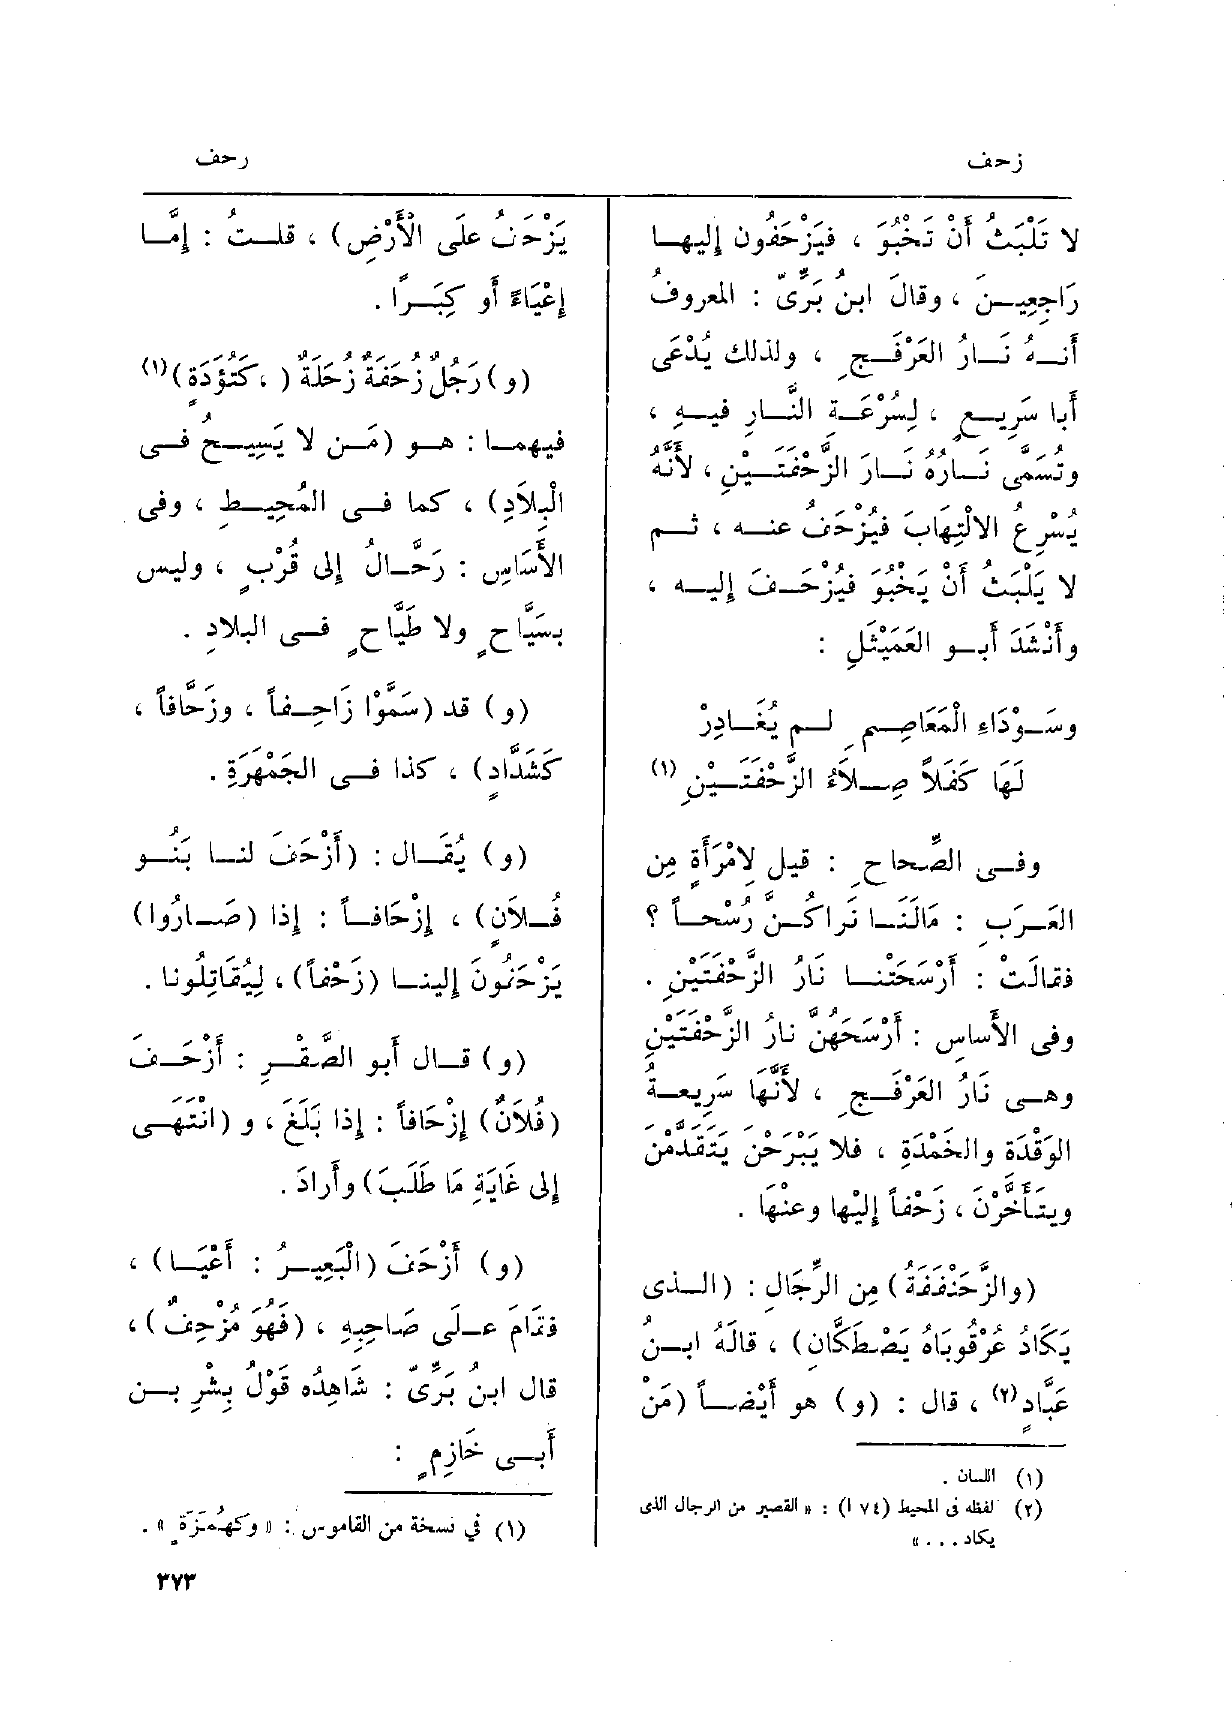 زحف
رحف
لا تَلْبَثُ أَنْ تَخْبُوَ ، فيَزْحَفُون إليهــا
رَاجِعِيــنَ ، وقالَ ابنُ بَرِّىّ : المعروفُ
أَنــهُ نَــارُ العَرْفَــجِ ، ولذلك يُدْعَى
أَبا سَرِيــعٍ ، لِسُرْعَــةِ النَّــارِ فيــهِ ،
وتُسَمَّى نَــارُهُ نَــارَ الزَّحْفَتَــيْنِ ، لأَنَّهُ
يُسْرِعُ الالْتِهَابَ فيُزْحَفُ عنــه ، ثــم
لا يَلْبَثُ أَنْ يَخْبُوَ فيُزْحَــفَ إليــه ،
وأَنْشَدَ أَبــو العَمَيْثَلِ :
وسَــوْدَاءِ الْمَعَاصِــمِ لــم يُغَــادِرْ
لَهَا كَفَلاً صِــلاَءُ الزَّحْفَتَــيْنِ (١)
وفــى الصِّحاحِ : قيل لِامْرَأَةٍ مِن
العَــرَبِ : مَالَنَــا نَراكُــنَّ رُسْحــاً ؟
فقالَتْ : أَرْسَحَتْنــا نَارُ الزَّحْفَتَيْنِ .
وفى الأَساسِ : أَرْسَحَهُنَّ نارُ الزَّحْفَتَيْنِ
وهــى نَارُ العَرْفَــجِ ، لأَنَّهَا سَرِيعــةُ
الوَقْدَةِ والخَمْدَةِ ، فلا يَبْرَحْنَ يَتَقَدَّمْنَ
ويتَأَخَّرْنَ ، زَحْفاً إِليْها وعنْهَا .
(والزَّحَنْفَفَةُ) مِن الرِّجَالِ : (الــذى
يَكَادُ عُرْقُوبَاهُ يَصْطَكَّانِ) ، قالَهُ ابــنُ
عَبَّادٍ (٢) ، قال : (و) هو أَيْضــاً (مَنْ
(١) اللسان .
(٢) لفظه فى المحيط (٧٤ ا) : « القصير من الرجال الذى
يكاد . . . »
يَزْحَفُ علَى الْأَرْضِ) ، قلــتُ : إِمَّــا
إِعْيَاءً أَو كِبَــرًا .
(و) رَجُلٌ زُحَفَةٌ زُحَلَةٌ ( ، كَتُؤَدَةٍ) (١)
فيهمــا : هــو (مَــن لا يَسِيــحُ فــى
الْبِلاَدِ) ، كما فــى المُحِيــطِ ، وفى
الأَسَاسِ : رَحَّــالُ إلى قُرْبٍ ، وليس
بسَيَّاحٍ ولا طَيَّاحٍ فــى البلادِ .
(و) قد (سَمَّوْا زَاحِــفاً ، وزَحَّافاً ،
كشَدَّادٍ) ، كذا فــى الجَمْهَرَةِ .
(و) يُقَــال : (أَزْحَفَ لنــا بَنُــو
فُــلاَنٍ) ، إِزْحَافــاً : إذا (صَــارُوا)
يَزْحَفُونَ إِلينــا (زَحْفاً) ، لِيُقَاتِلُونا .
(و) قــال أَبو الصَّقْــرِ : أَزْحَــفَ
(فُلاَنٌ) إِزْحَافاً : إِذا بَلَغَ ، و (انْتَهَــى
إلى غَايَةِ مَا طَلَبَ) وأَرادَ .
(و) أَزْحَفَ (الْبَعِيــرُ : أَعْيَــا) ،
فقَامَ عــلَى صَاحِبِهِ ، (فَهُوَ مُزْحِفٌ) ،
قال ابنُ بَرِّىّ : شَاهِدُه قَوْلُ بِشْرِ بــن
أَبــى خَازِمٍ :
(١) في نسخة من القاموس : « وكهُمَزَةٍ » .
٣٧٣